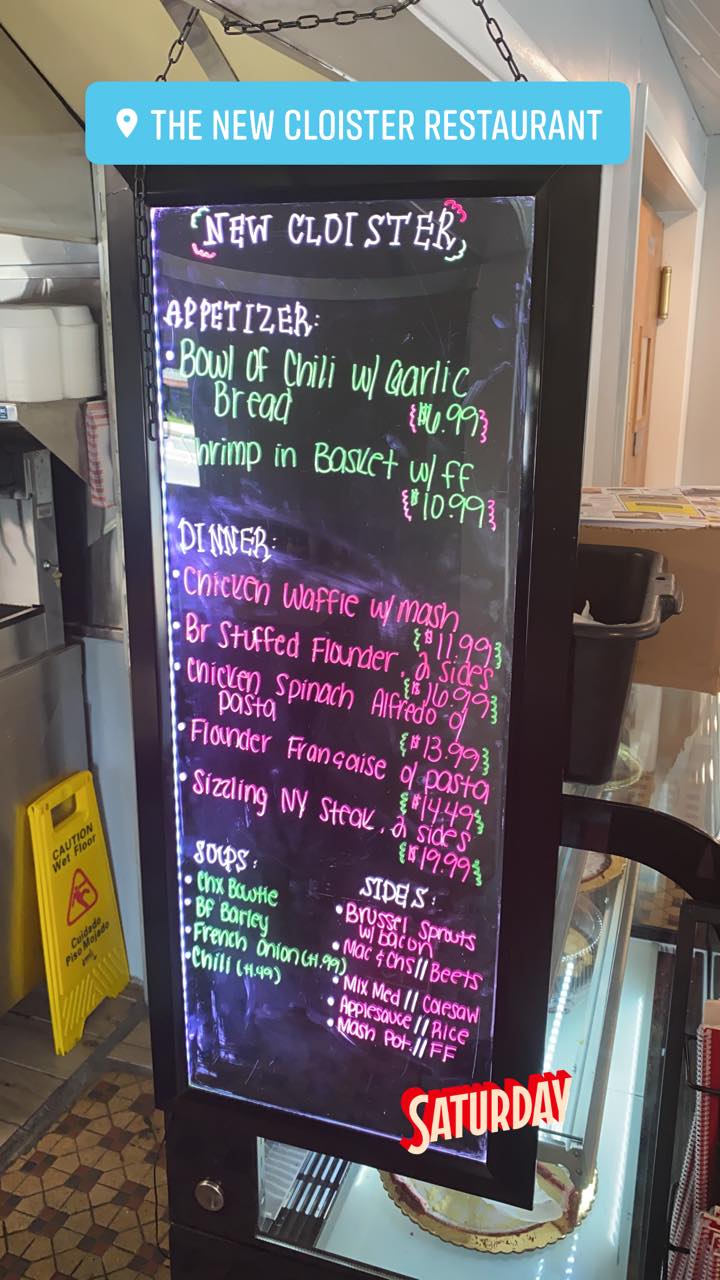 THE NEW CLOISTER RESTAURANT
NEW CLOISTER
APPETIZER:
• Bowl of Chili w/ Garlic
Bread {$6.99}
Shrimp in Basket w/ ff
{$10.99}
DINNER:
• Chicken Waffle w/ mash
{$11.99}
• Br Stuffed Flounder, 2 sides
{$16.99}
• Chicken Spinach Alfredo o/
pasta
{$13.99}
• Flounder Francaise o/ pasta
{$14.49}
• Sizzling NY Steak, 2 sides
{$19.99}
SOUPS:
• Chx Bowtie
• BF Barley
• French Onion (4.99)
• Chili (4.49)
SIDES:
• Brussel Sprouts
w/ Bacon
• Mac & Chs // Beets
• Mix Med // Colesaw
• Applesauce // Rice
• Mash Pot. // FF
SATURDAY
CAUTION
Wet Floor
Cuidado
Piso Mojado